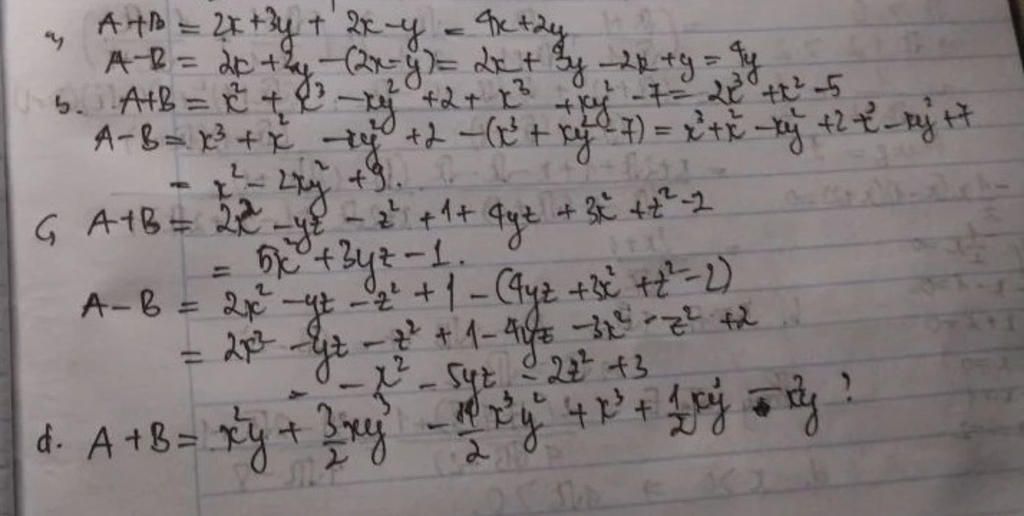 a, A+B = 2x+3y + 2x-y = 4x+2y
A-B = 2x+3y-(2x-y) = 2x+3y-2x+y = 4y
b. A+B = x²+x³-xy²+2+x³+xy²-7 = 2x³+x²-5
A-B = x³+x²-xy²+2-(x³+xy²-7) = x³+x²-xy²+2-x³-xy²+7
= x²-2xy²+9.
c, A+B = 2x²-yz-z²+1+4yz+3x²+z²-2
= 5x²+3yz-1.
A-B = 2x²-yz-z²+1-(4yz+3x²+z²-2)
= 2x²-yz-z²+1-4yz-3x²-z²+2
= -x²-5yz-2z²+3
d. A+B = x²y+3/2xy³-11/2x³y²+x³+1/2xy³-x²y?